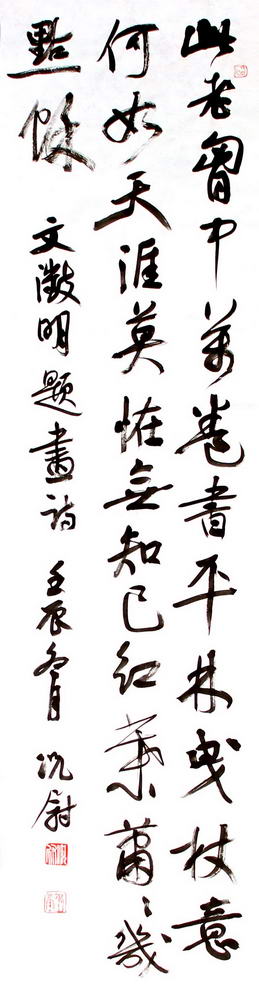 此老胷中萬卷書平林曳杖意
何如天涯莫怪無知己紅葉蕭〻幾
點餘
文徵明題畫詩 壬辰冬月 沈尉